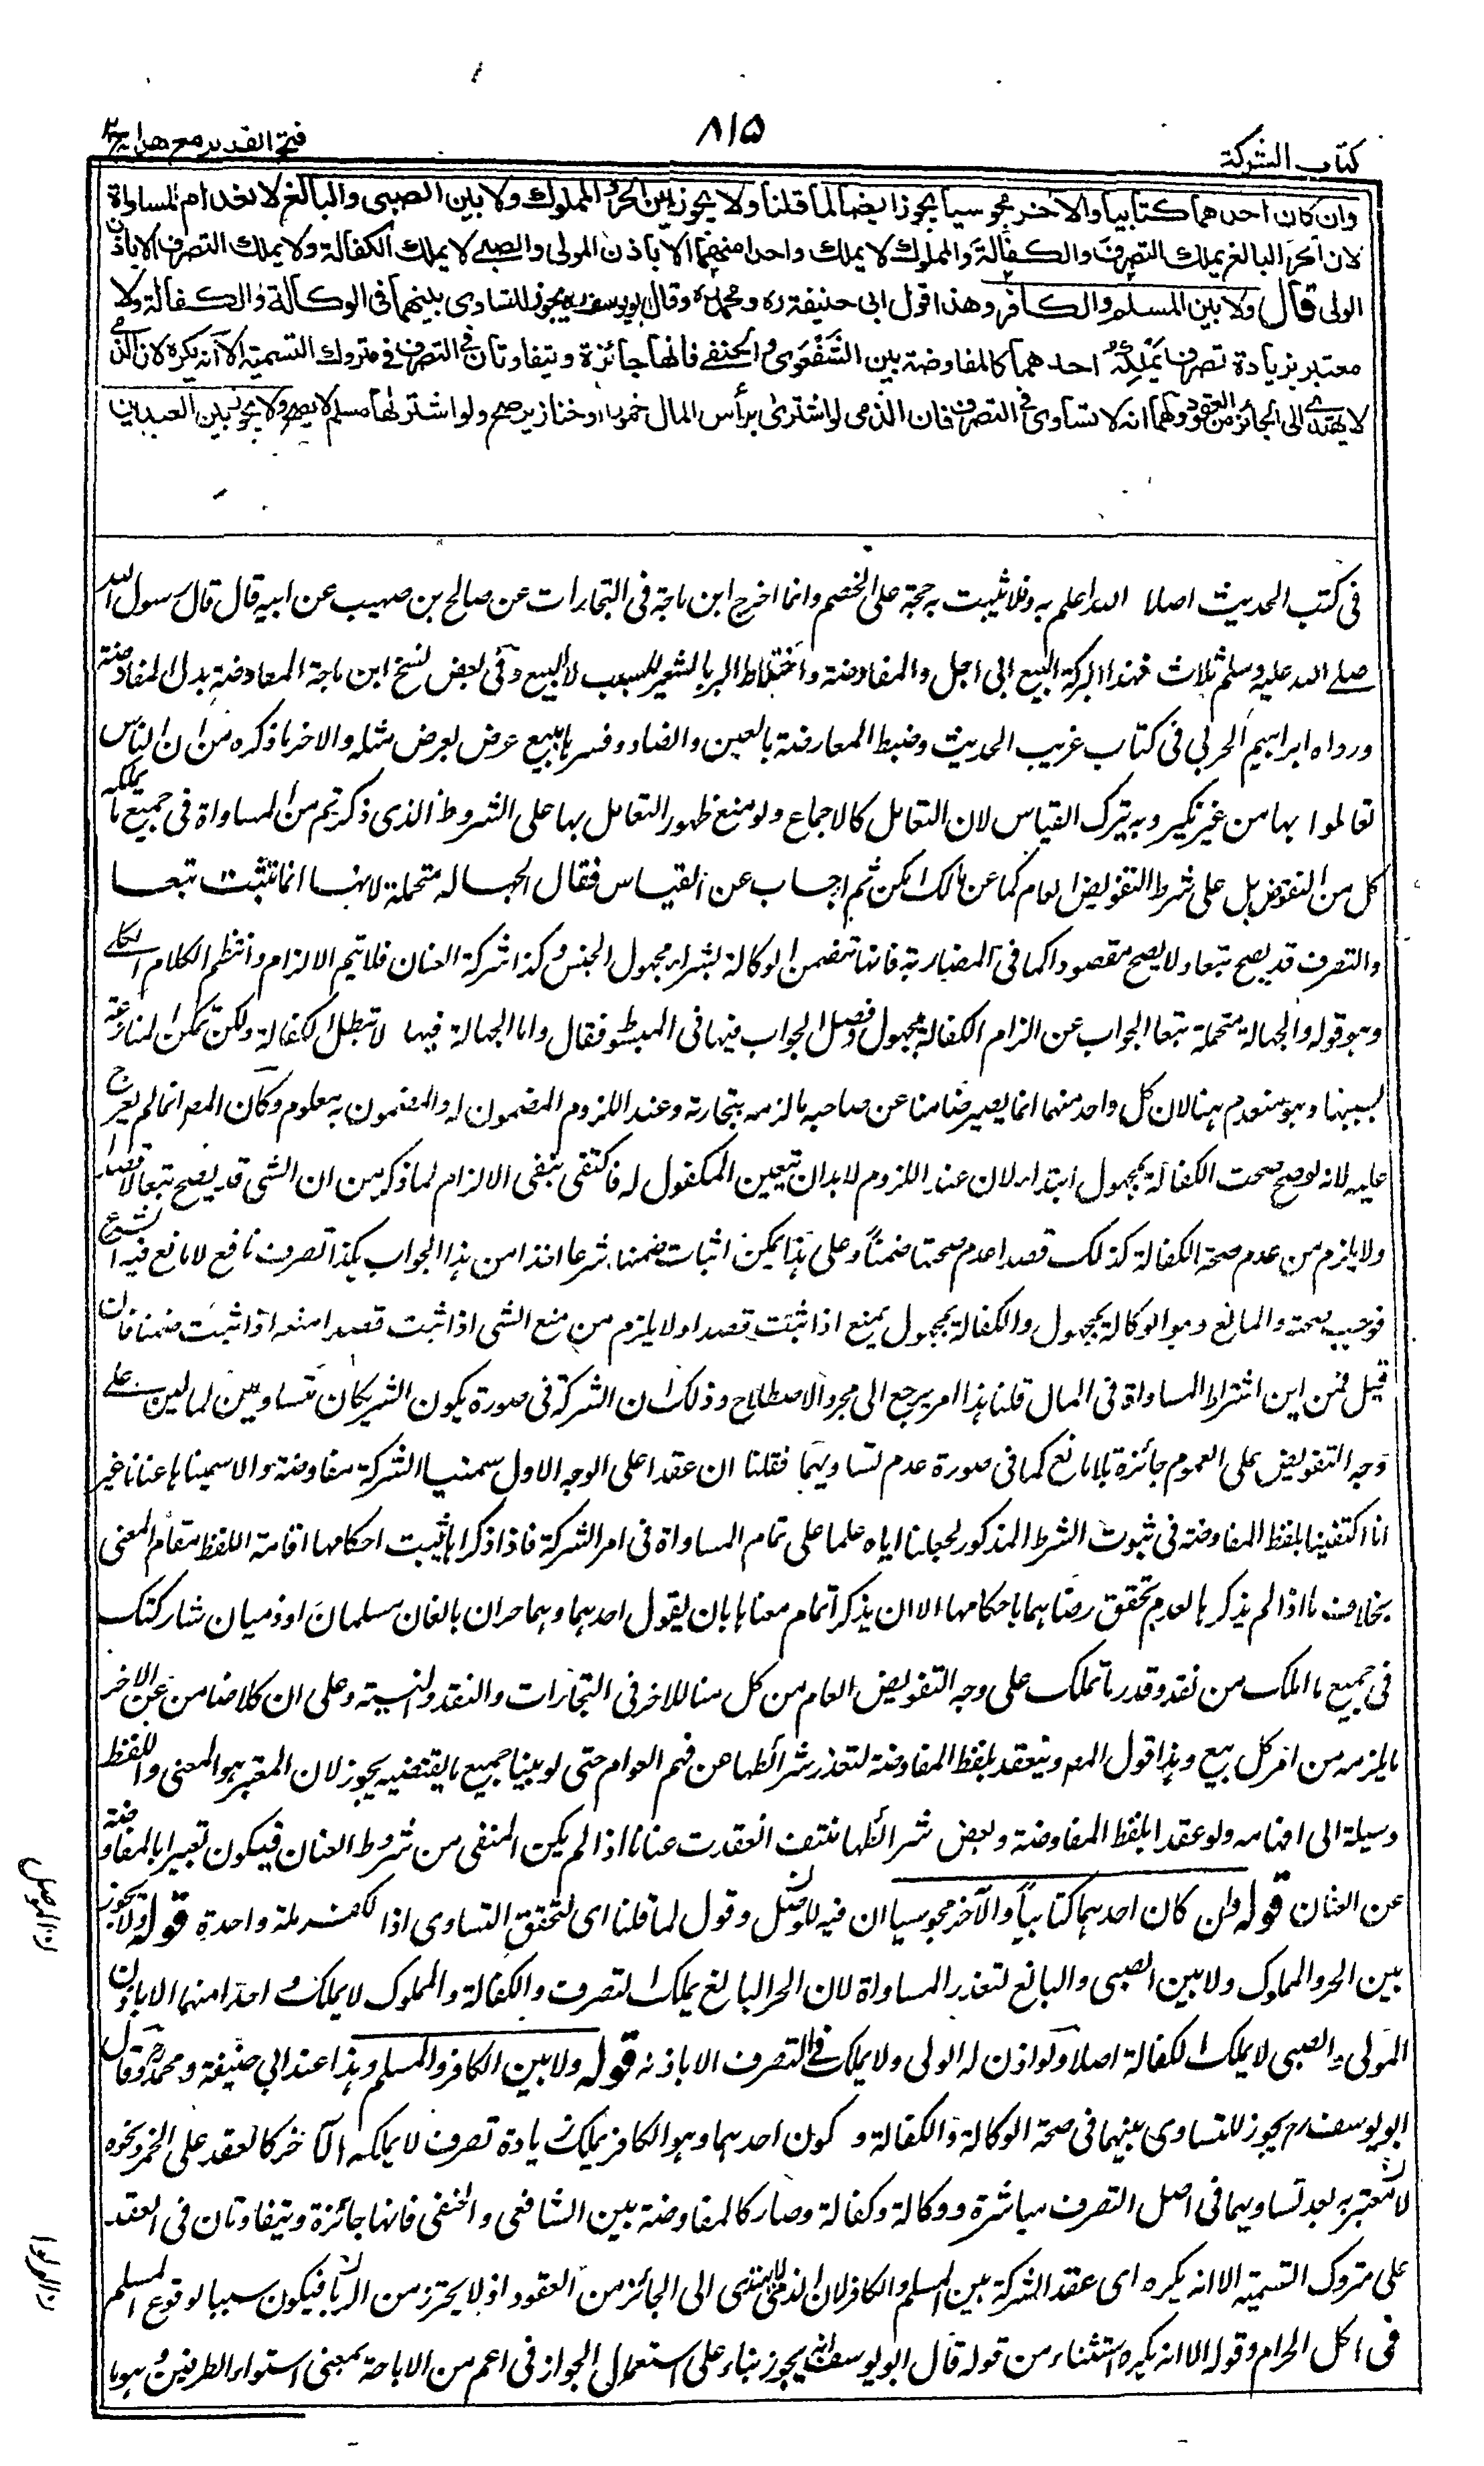 كتاب الشركة
٨١٥
فتح القدير مع هدايه ج٢
وان كان احدهما كتابيا والآخر مجوسيا يجوز ايضا لما قلنا ولا يجوز بين الحر والمملوك ولا بين الصبى والبالغ لانعدام المساواة
لان الحر البالغ يملك التصرف والكفالة والمملوك لا يملك واحدا منهما الا باذن المولى والصبى لا يملك الكفالة ولا يملك التصرف الا باذن
الولى قال ولا بين المسلم والكافر وهذا قول ابى حنيفة ره ومحمد ره وقال ابو يوسف ره يجوز للتساوى بينهما فى الوكالة والكفالة ولا
معتبر بزيادة تصرف يملكه احدهما كالمفاوضة بين الشفعوى والحنفى فانها جائزة ويتفاوتان فى التصرف فى متروك التسمية الا انه يكره لان الذمى
لا يهتدى الى الجائز من العقود ولهما انه لا تساوى فى التصرف فان الذمى لو اشترى برأس المال خمورا وخنازير صح ولو اشترىها مسلم لا يصح ولا يجوز بين العبدين
فى كتب الحديث اصلا الله اعلم به فلا يثبت به حجة على الخصم وانما اخرج ابن ماجة فى التجارات عن صالح بن صهيب عن ابيه قال قال رسول الله
صلے الله عليه وسلم ثلاث فهن البركة البيع الى اجل والمفاوضة واختلاط البر بالشعير للبيت لا للبيع وفى بعض نسخ ابن ماجة المعاوضة بدل المفاوضة
ورواه ابراهيم الحربى فى كتاب غريب الحديث وضبط المعارضة بالعين والضاد وفسرها ببيع عرض بعرض مثله والاخر ما ذكره من ان الناس
تعاملوا بها من غير نكير وبه يترك القياس لان التعامل كالاجماع ولو منع ظهور التعامل بها على الشروط الذى ذكرتم من المساواة فى جميع ما يملكه
كل من النقود بل على شرط التفويض العام كما عن مالك امكن ثم اجاب عن القياس فقال الجهالة متحملة لانها انما تثبت تبعا
والتصرف قد يصح تبعا ولا يصح مقصودا كما فى المضاربة فانها تتضمن الوكالة بشراء مجهول الجنس وكذا شركة العنان فلا يتم الالزام وانتظم الكلام
وهو قوله والجهالة متحملة تبعا الجواب عن الزام الكفالة بمجهول وفصل الجواب فيها فى المبسوط فقال واما الجهالة فيها لا تبطل الكفالة ولكن تمكن المنازعة
بسببها وهو منعدم هنا لان كل واحد منهما انما يصير ضامنا عن صاحبه ما لزمه بتجارته وعند اللزوم المضمون له والمضمون به معلوم وكأن المص انما لم يعرج
عليه لانه لو صح صحت الكفالة بمجهول ابتداء لان عند اللزوم لا بد ان يتعين المكفول له فاكتفى بنفى الالزام لما ذكر من ان الشى قد يصح تبعا لا قصدا
ولا يلزم من عدم صحة الكفالة كذلك قصدا عدم صحتها ضمنا وعلى هذا يمكن اثبات ضمنها شرعا اخذا من هذا الجواب هكذا تصرف نافع لا مانع فيه
فوجب صحته والمانع وهو الوكالة بمجهول والكفالة بمجهول يمنع اذا ثبتت قصدا ولا يلزم من منع الشى اذا ثبت قصدا منعه اذا ثبت ضمنا فان
قيل فمن اين اشتراط المساواة فى المال قلنا هذا امر يرجع الى مجرد الاصطلاح وذلك ان الشركة فى صورة يكون الشريكان متساويين لمالين على
وجه التفويض على العموم جائزة بلا مانع كما فى صورة عدم تساويهما فقلنا ان عقدا على الوجه الاول سمينا الشركة مفاوضة والا سميناها عنانا غير
انا اكتفينا بلفظ المفاوضة فى ثبوت الشرط المذكور لجعلنا اياه علما على تمام المساواة فى امر الشركة فاذا ذكراها يثبت احكامها اقامة اللفظ مقام المعنى
بخلاف ما اذا لم يذكراها لعدم تحقق رضاهما باحكامها الا ان يذكرا تمام معناها بان يقول احدهما وهما حران بالغان مسلمان او ذميان شاركتك
فى جميع ما املك من نقد وقدر ما تملك على وجه التفويض العام من كل منا للاخر فى التجارات والنقد والنسيئة وعلى ان كلا ضامن عن الاخر
ما يلزمه من امر كل بيع وهذا قول المص وينعقد بلفظ المفاوضة لتعذر شرائطها عن فهم العوام حتى لو بينا جميع ما يقتضيه يجوز لان المعتبر هو المعنى واللفظ
وسيلة الى افهامه ولو عقدا بلفظ المفاوضة وبعض شرائطها منتف انعقدت عنانا اذا لم يكن المنفى من شروط العنان فيكون تعبيرا بالمفاوضة
عن العنان قوله وان كان احدهما كتابيا والآخر مجوسيا ان فيه للوصل وقول لما قلنا اى لتحقق التساوى اذا الكفر ملة واحدة قوله ولا يجوز
بين الحر والمملوك ولا بين الصبى والبالغ لتعذر المساواة لان الحر البالغ يملك التصرف والكفالة والمملوك لا يملك واحدا منهما الا باذن
المولى والصبى لا يملك الكفالة اصلا ولو اذن له الولى ولا يملك التصرف الا باذنه قوله ولا بين الكافر والمسلم وهذا عند ابى حنيفة ومحمد رح وقال
ابو يوسف رح يجوز للتساوى بينهما فى صحة الوكالة والكفالة و كون احدهما وهو الكافر يملك زيادة تصرف لا يملكه الآخر كالعقد على الخمر ونحوه
لا معتبر به بعد تساويهما فى اصل التصرف مباشرة ووكالة وكفالة وصار كالمفاوضة بين الشافعى والحنفى فانها جائزة ويتفاوتان فى العقد
على متروك التسمية الا انه يكره اى عقد الشركة بين المسلم والكافر لان الذمى لا يهتدى الى الجائز من العقود او لا يحترز من الربا فيكون سببا لوقوع المسلم
فى اكل الحرام وقوله الا انه يكره استثناء من قوله قال ابو يوسف انه يجوز بناء على استعمال الجواز فى اعم من الاباحة بمعنى استواء الطرفين وهو ما